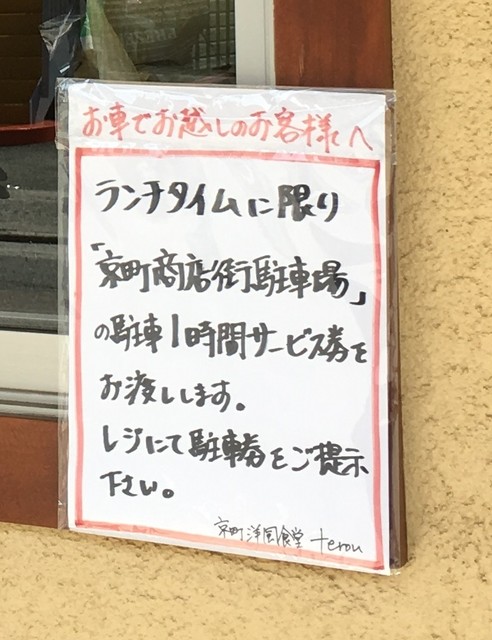 お車でお越しのお客様へ
ランチタイムに限り
「京町商店街駐車場」
の駐車1時間サービス券を
お渡しします。
レジにて駐車券をご提示
下さい。
京町洋風食堂 terou